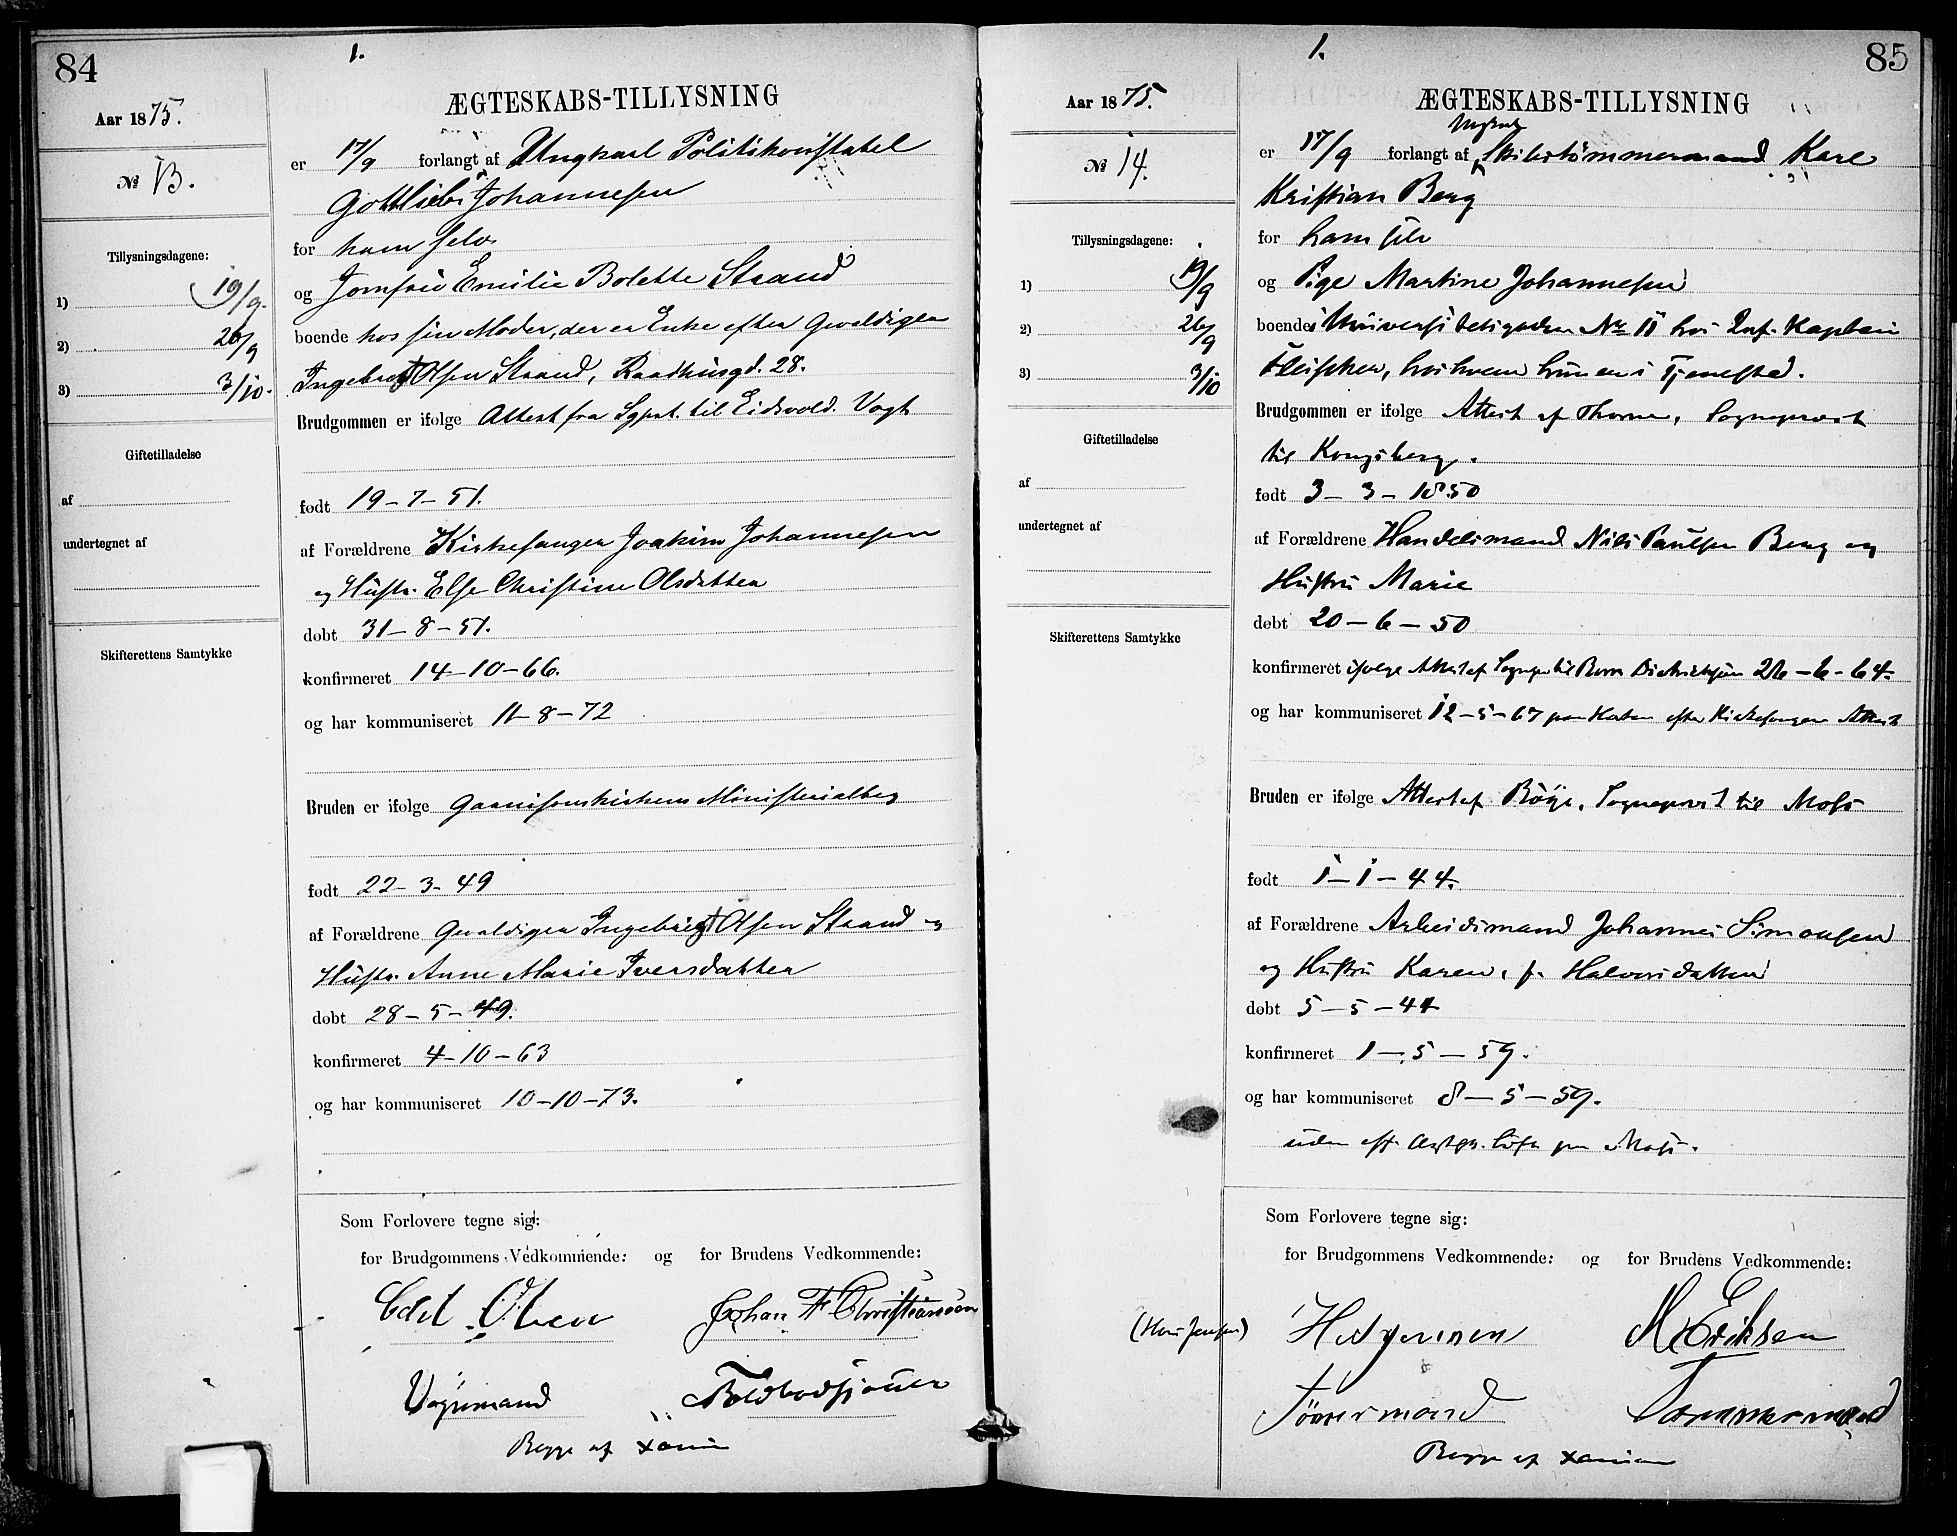 84
1.
ÆGTESKABS-TILLYSNING
Aar 1875.
№ 13.
Tillysningsdagene:
1) 19/9.
2) 26/9
3) 3/10.
Giftetilladelse
af
undertegnet af
Skifterettens Samtykke
er 17/9 forlangt af Ungkarl Politikonstabel
Gottlieb Johannesen
for ham selv
og Jomfru Emilie Bolette Strand
boende hos sin Moder, der er Enke efter Gevaldiger
Ingebregt Olsen Strand, Raadhusgd. 28.
Brudgommen er ifølge Attest fra Sgpr. til Eidsvold. Vogt
født 19-7-51.
af Forældrene Kirkesanger Joakim Johannesen
og Hustr. Else Christine Olsdatter
døbt 31-8-51.
konfirmeret 14-10-66.
og har kommuniseret 11-8-72
Bruden er ifølge Garnisonskirkens Ministerialbog
født 22-3-49
af Forældrene Gevaldiger Ingebregt Olsen Strand og
Hustr. Anne Marie Iversdatter
døbt 28-5-49.
konfirmeret 4-10-63
og har kommuniseret 10-10-73.
Som Forlovere tegne sig:
for Brudgommens Vedkommende: og for Brudens Vedkommende:
Olsen Johan F Christiansen
Begge af Xania
85
1.
ÆGTESKABS-TILLYSNING
Aar 1875.
№ 14.
Tillysningsdagene:
1) 19/9
2) 26/9
3) 3/10
Giftetilladelse
af
undertegnet af
Skifterettens Samtykke
Ungkarl
er 17/9 forlangt af Skibstømmermand Karl
Kristian Berg
for ham selv
og Pige Martine Johannesen
boende i Universitetsgaden No 11 hos Inf. Kaptein
Fleischer, hos hvem hun er i Tjeneste.
Brudgommen er ifølge Attest af Thorne, Sogneprest
til Kongsberg.
født 3-3-1850
af Forældrene Handelsmand Nils Paulsen Berg og
Hustru Marie
døbt 20-6-50
konfirmeret ifølge Attest af Sognepr til 26-6-64.
og har kommuniseret 12-5-67 paa efter Kirkesangers Attest
Bruden er ifølge Attest af Sogneprest til Moss
født 1-1-44.
af Forældrene Arbeidsmand Johannes Simonsen
og Hustru Karen, f. Halvorsdatter
døbt 5-5-44
konfirmeret 1-5-59.
og har kommuniseret 8-5-59.
uden eft. paa Moss.
Som Forlovere tegne sig:
for Brudgommens Vedkommende: og for Brudens Vedkommende:
M Eriksen
Tømmermand Tømmermand
Begge af Xania